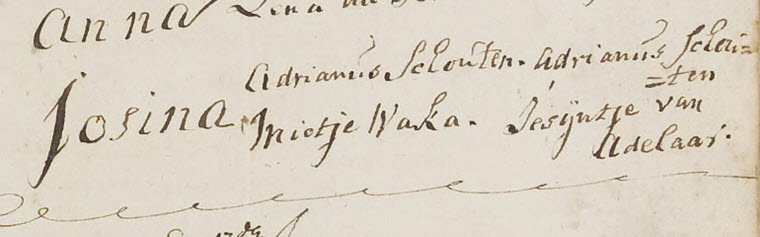 anna Lena
Josina
Adrianus Schouten. Adrianus Schou=
=ten
Mietje Waka. Jesyntje van
Adelaar.